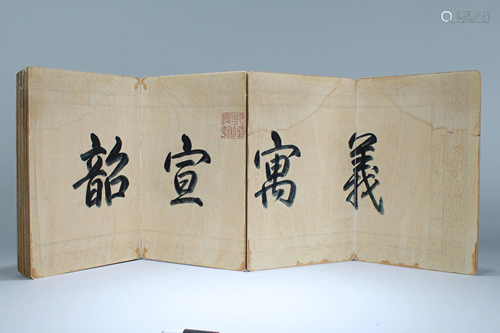 義寓宣韶